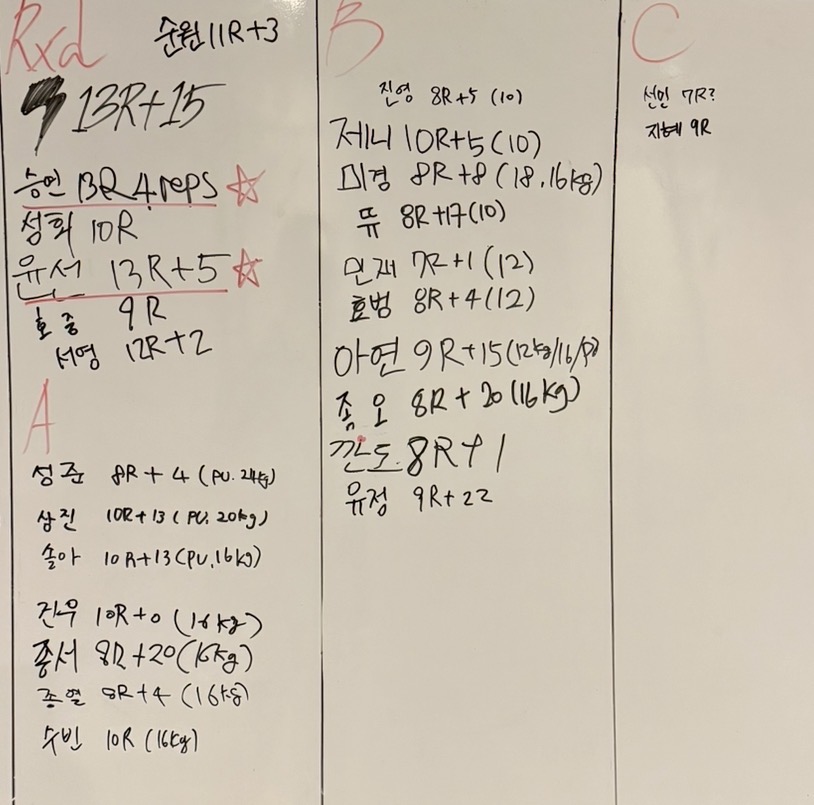 Rxd
순원 11R+3
13R+15
승연 13R 4reps
성희 10R
윤서 13R+5
호중 9R
서영 12R+2
A
성준 8R+4 (PU. 24kg)
삼진 10R+13 (PU. 20kg)
솔아 10R+13 (PU, 16kg)
진우 10R+0 (16kg)
종서 8R+20 (16kg)
종열 8R+4 (16kg)
수빈 10R (16kg)
B
진영 8R+5 (10)
제니 10R+5 (10)
미경 8R+8 (18, 16kg)
뜌 8R+17 (10)
민재 7R+1 (12)
효범 8R+4 (12)
아연 9R+15 (12kg/16/P)
좀오 8R+20 (16kg)
깐도. 8R+1
유정 9R+22
C
선민 7R?
지혜 9R